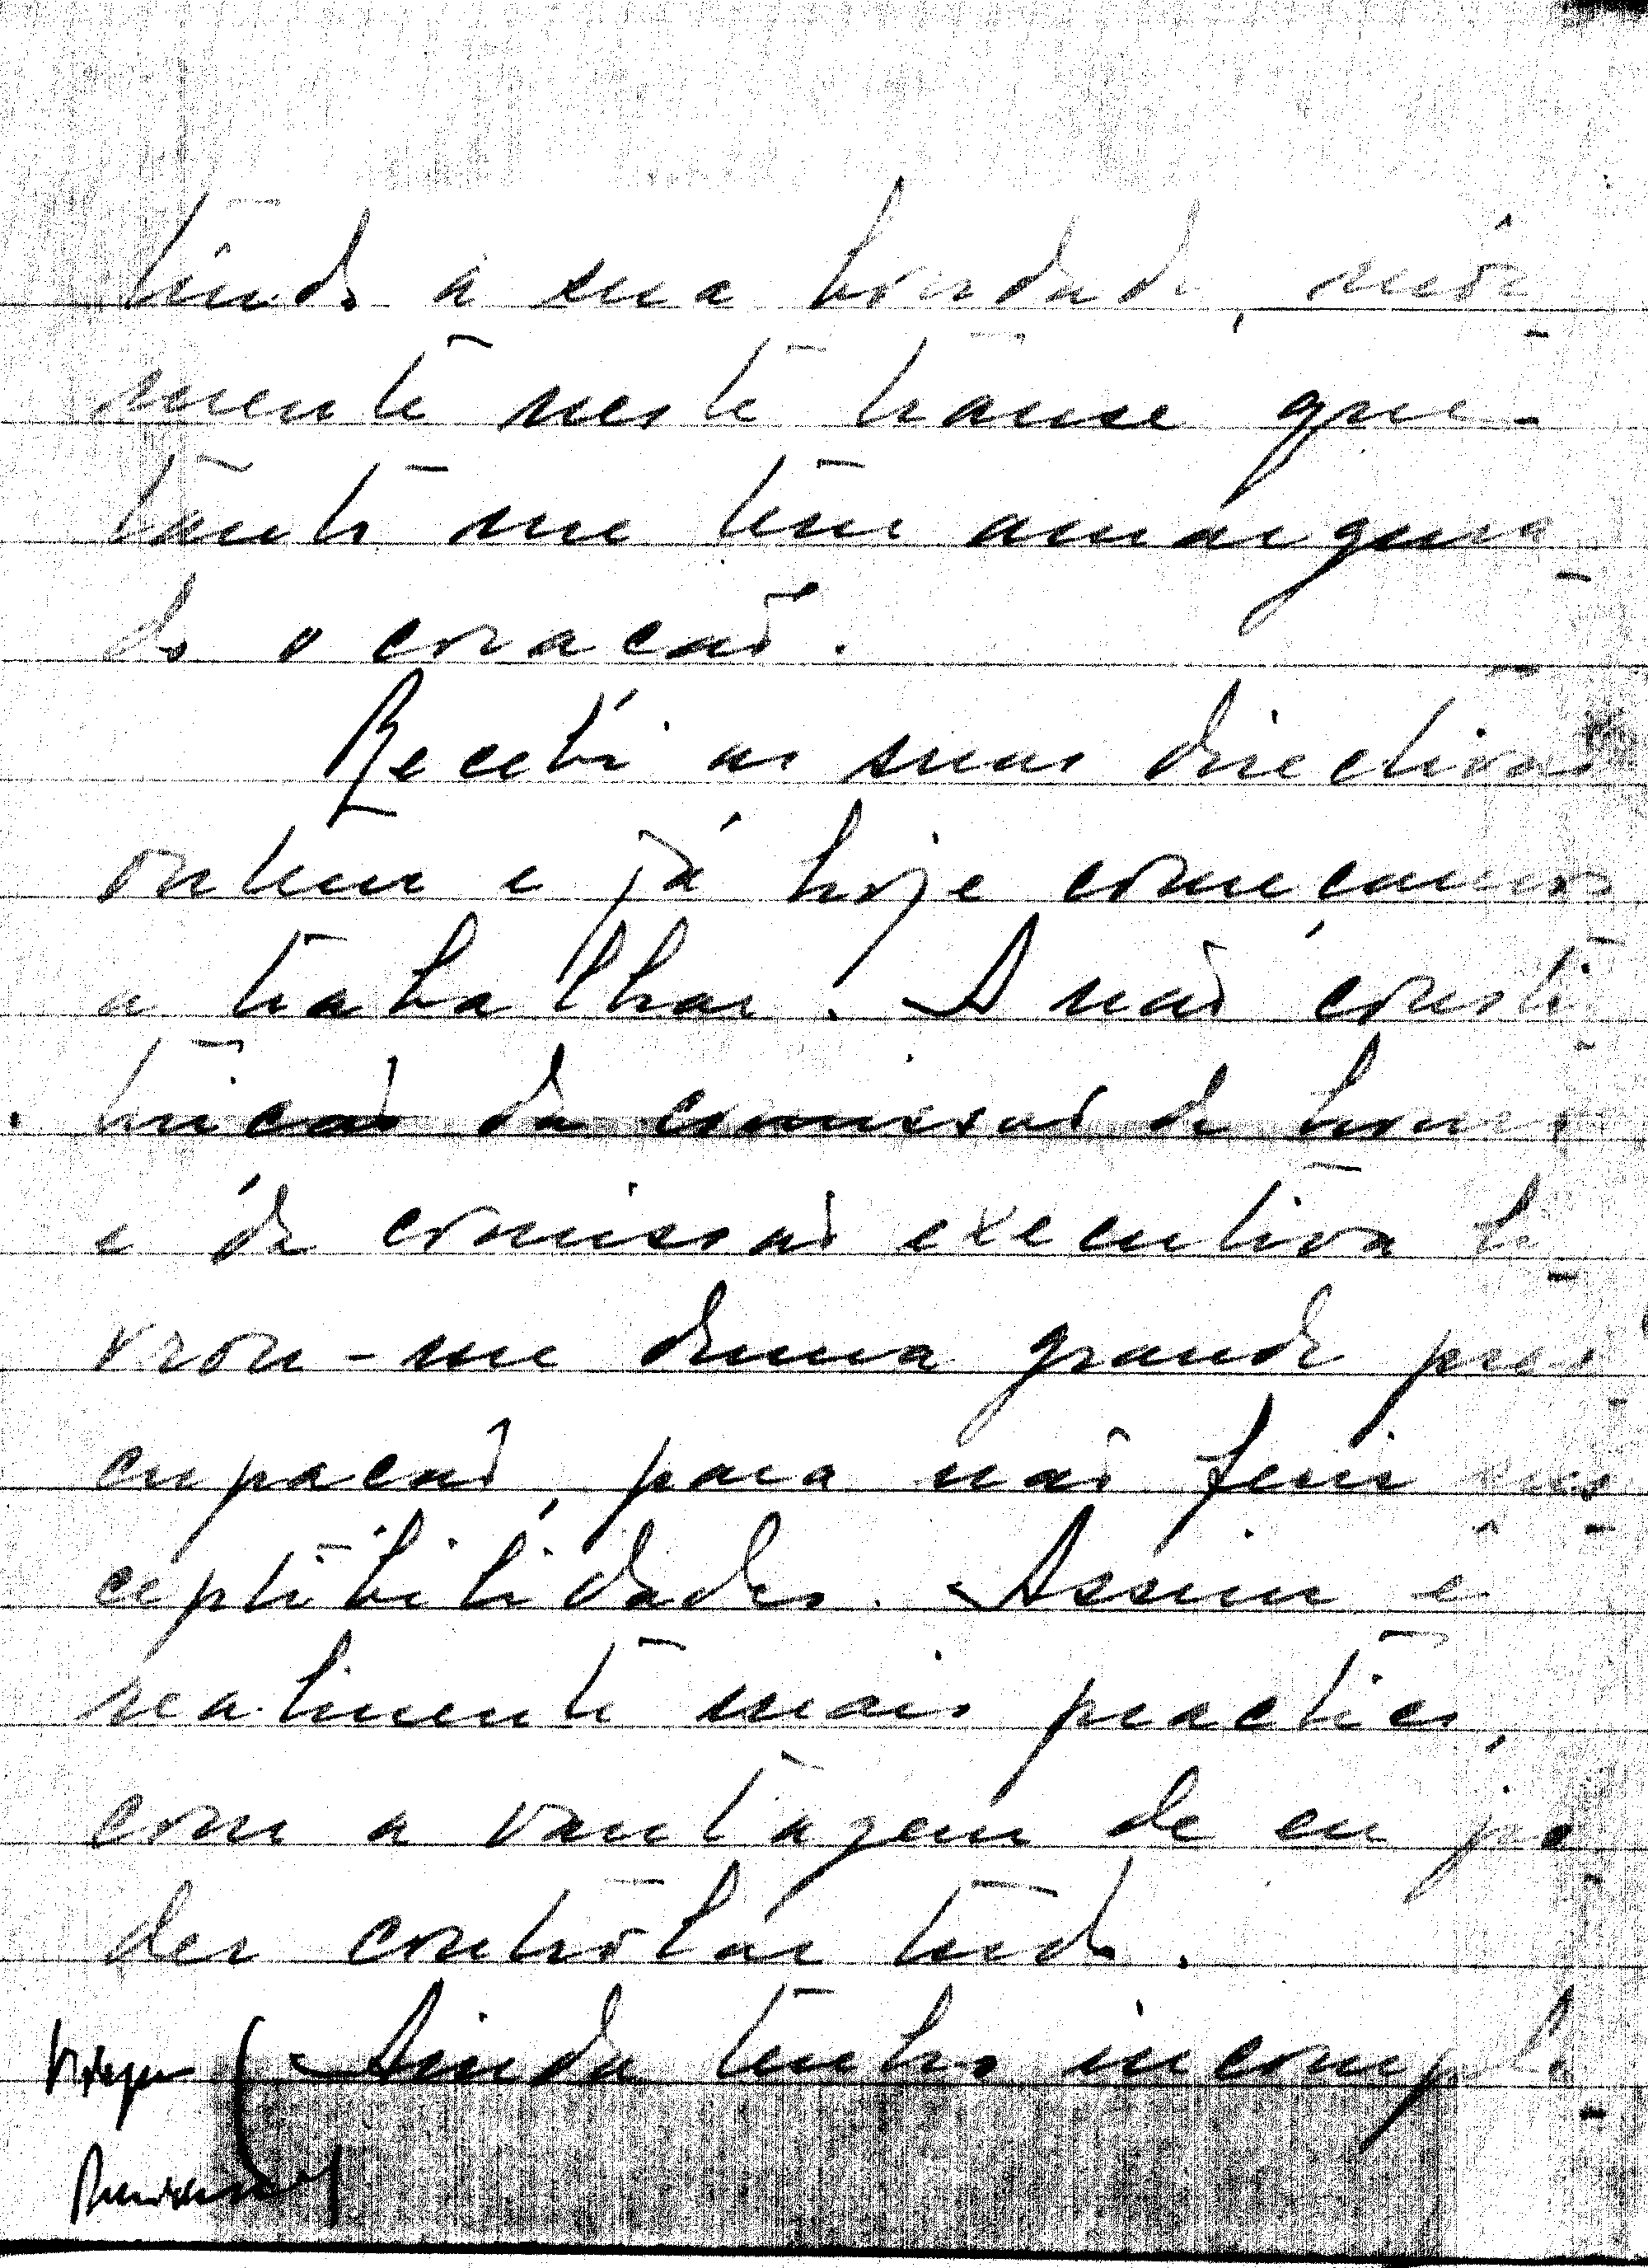 tindo à sua bondade,
mente neste transe que
tanto me tem amargura-
do o coração.
Recebi as suas directivas
ontem e já hoje começamos
a trabalhar. A não consti-
tuição da comissão de honra
e da comissão executiva li-
vrou-me duma grande preo-
cupação, para não ferir sus-
ceptibilidades. Assim é
realmente mais practico,
com a vantagem de eu po-
der controlar tudo.
Ainda tenho incomple-